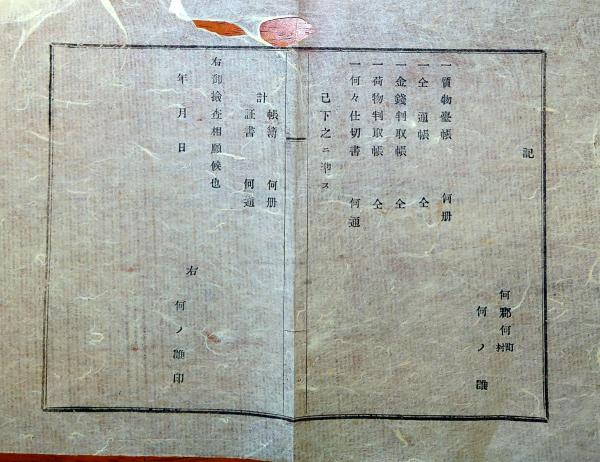 記
何郡何町村
何ノ誰
一質物臺帳 何册
一仝通帳 仝
一金錢判取帳 仝
一荷物判取帳 仝
一何々仕切書 何通
已下之ニ準ス
計 帳簿 何册
証書 何通
右御撿査相願候也
年月日
右 何ノ誰印